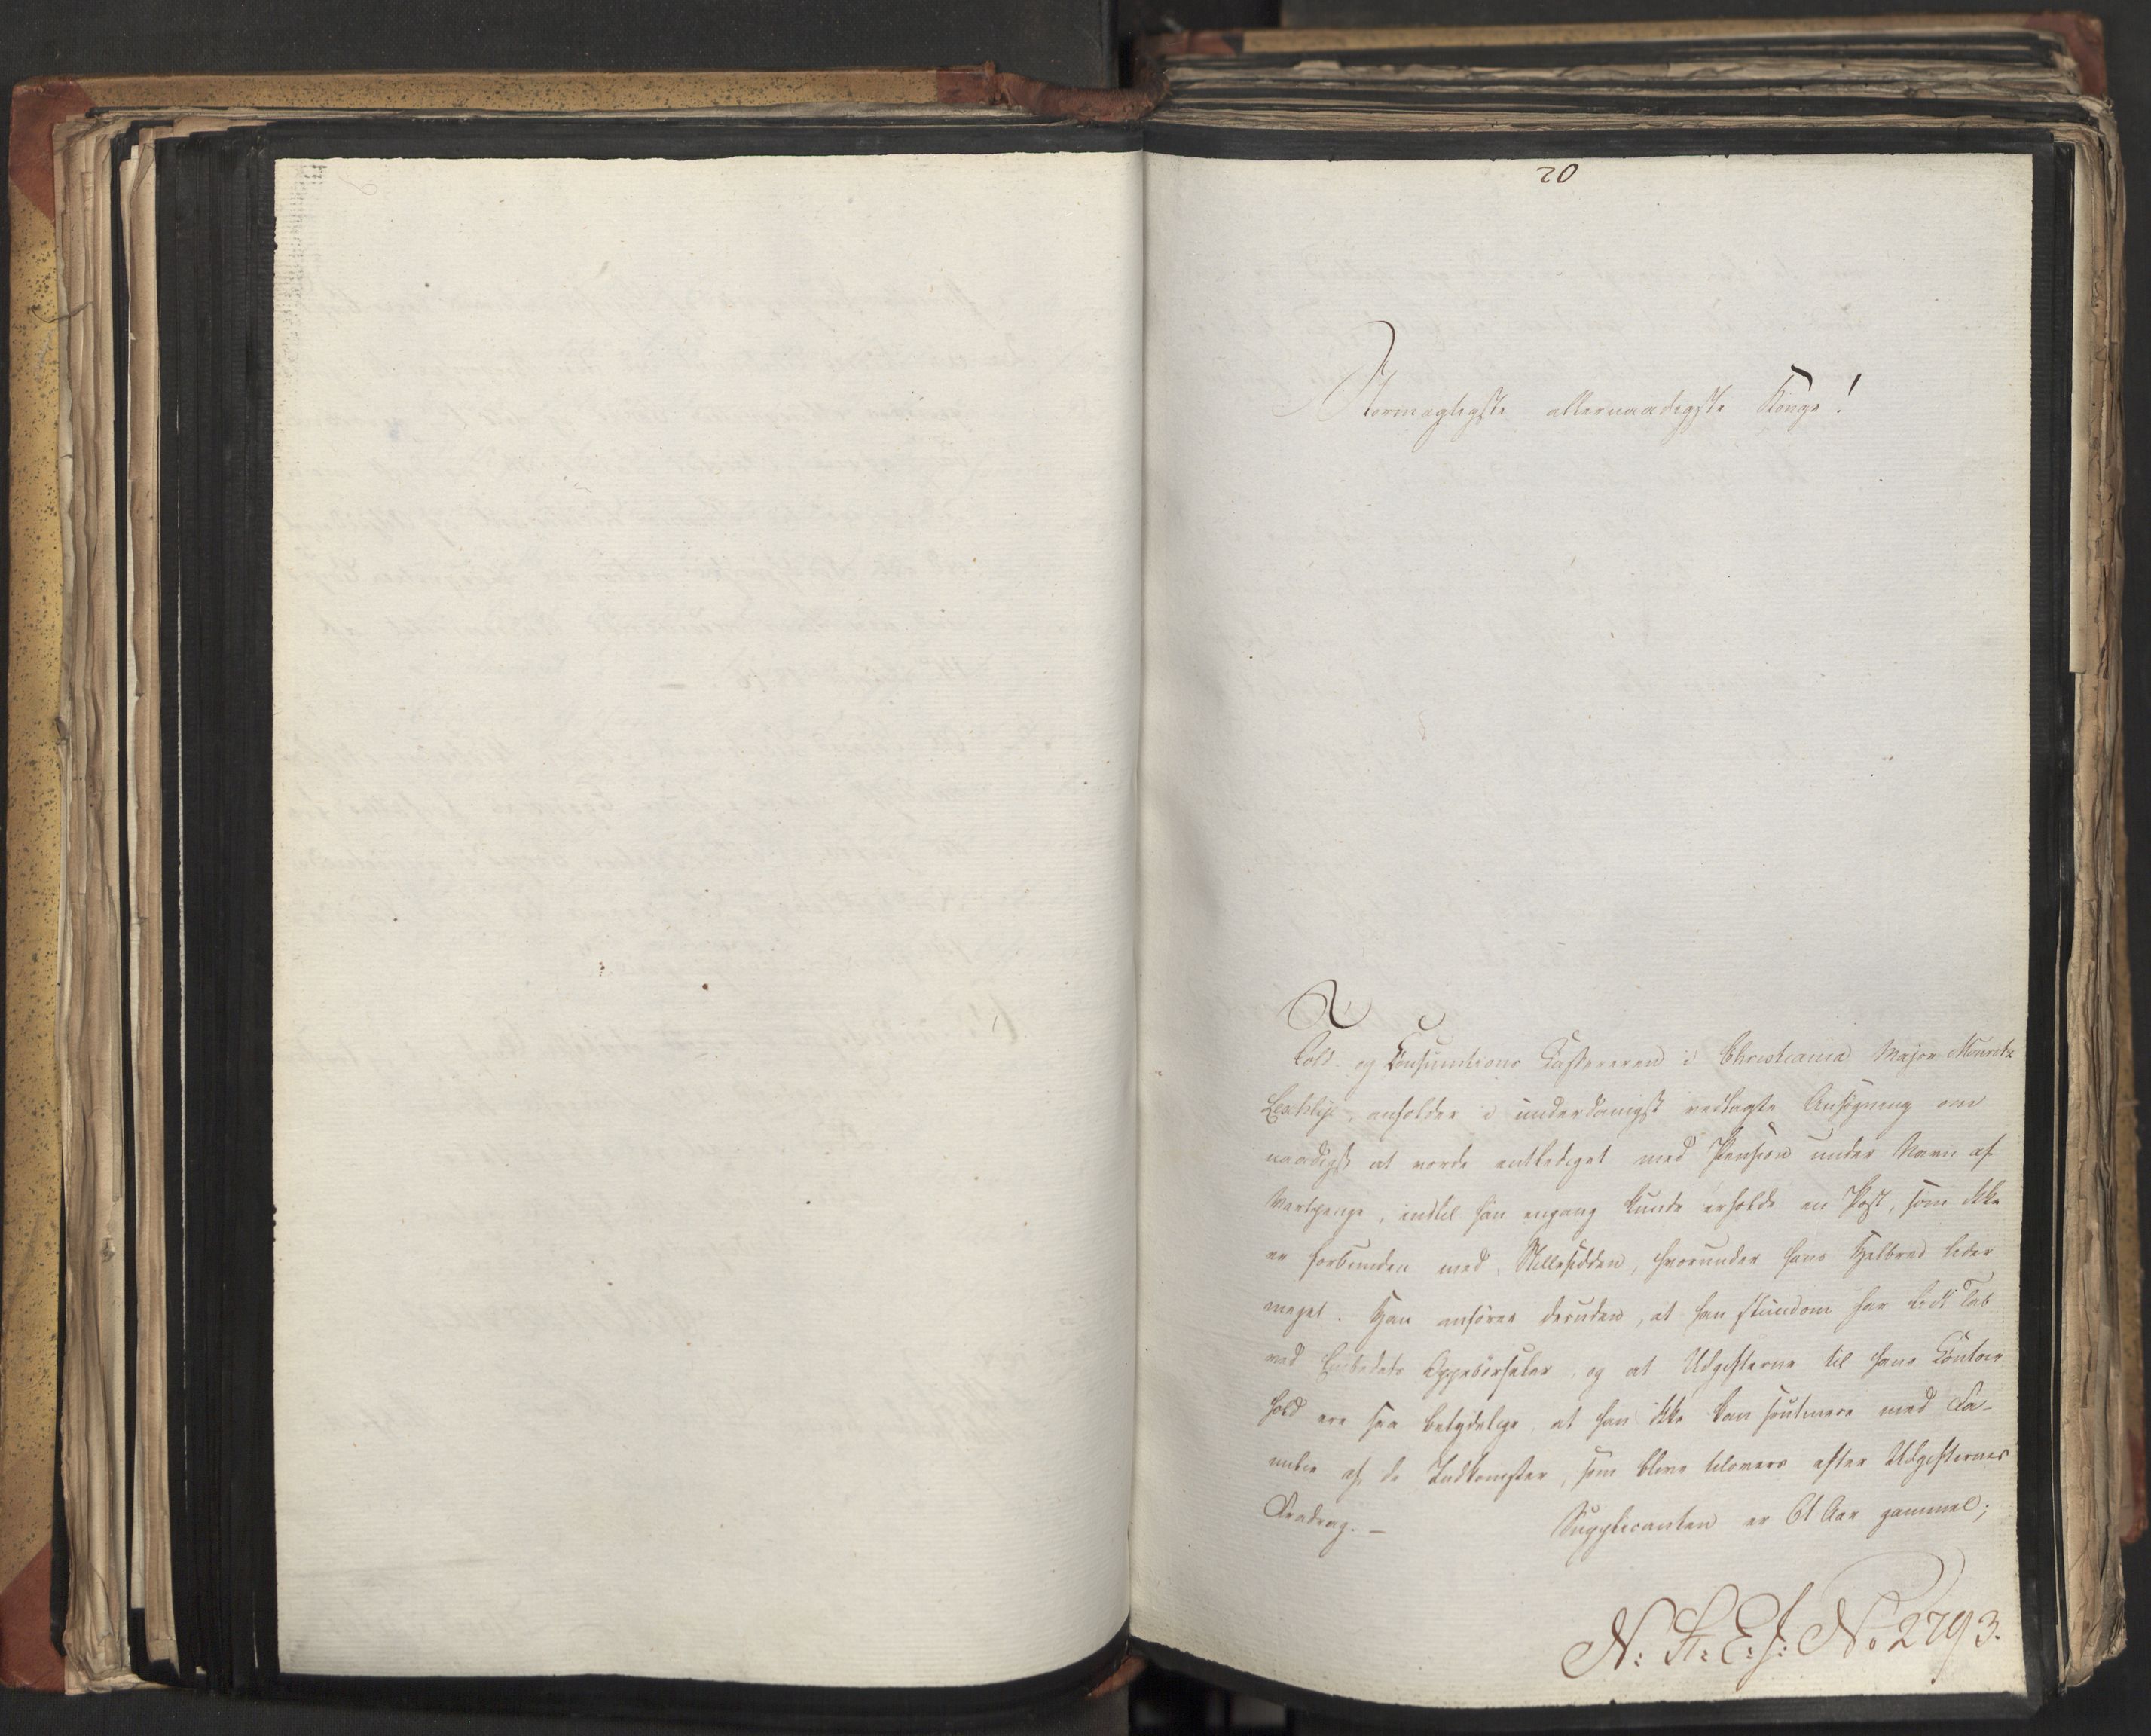 20
Stormægtigste allernaadigste Konge!
Told- og Consumtions Kassereren i Christiania Major Mouritz
anholder i underdanigst vedlagte Ansøgning om
naadigst at vorde entlediget med Pension under Navn af
Vartpenge, indtil han engang kunde erholde en Post, som ikke
er forbunden med Stillesidden, hvorunder hans Helbred lider
meget. Han anfører desuden, at han stundom har lidt Tab
ved Embedets Oppebørseler, og at Udgifterne til hans Contoir
hold ere saa betydelige, at han ikke kan soutinere med Fa-
milie af de Indkomster, som blive tilovers efter Udgifternes
Fradrag. — Supplicanten er 61 Aar gammel;
N: St: E: J: No 2793.